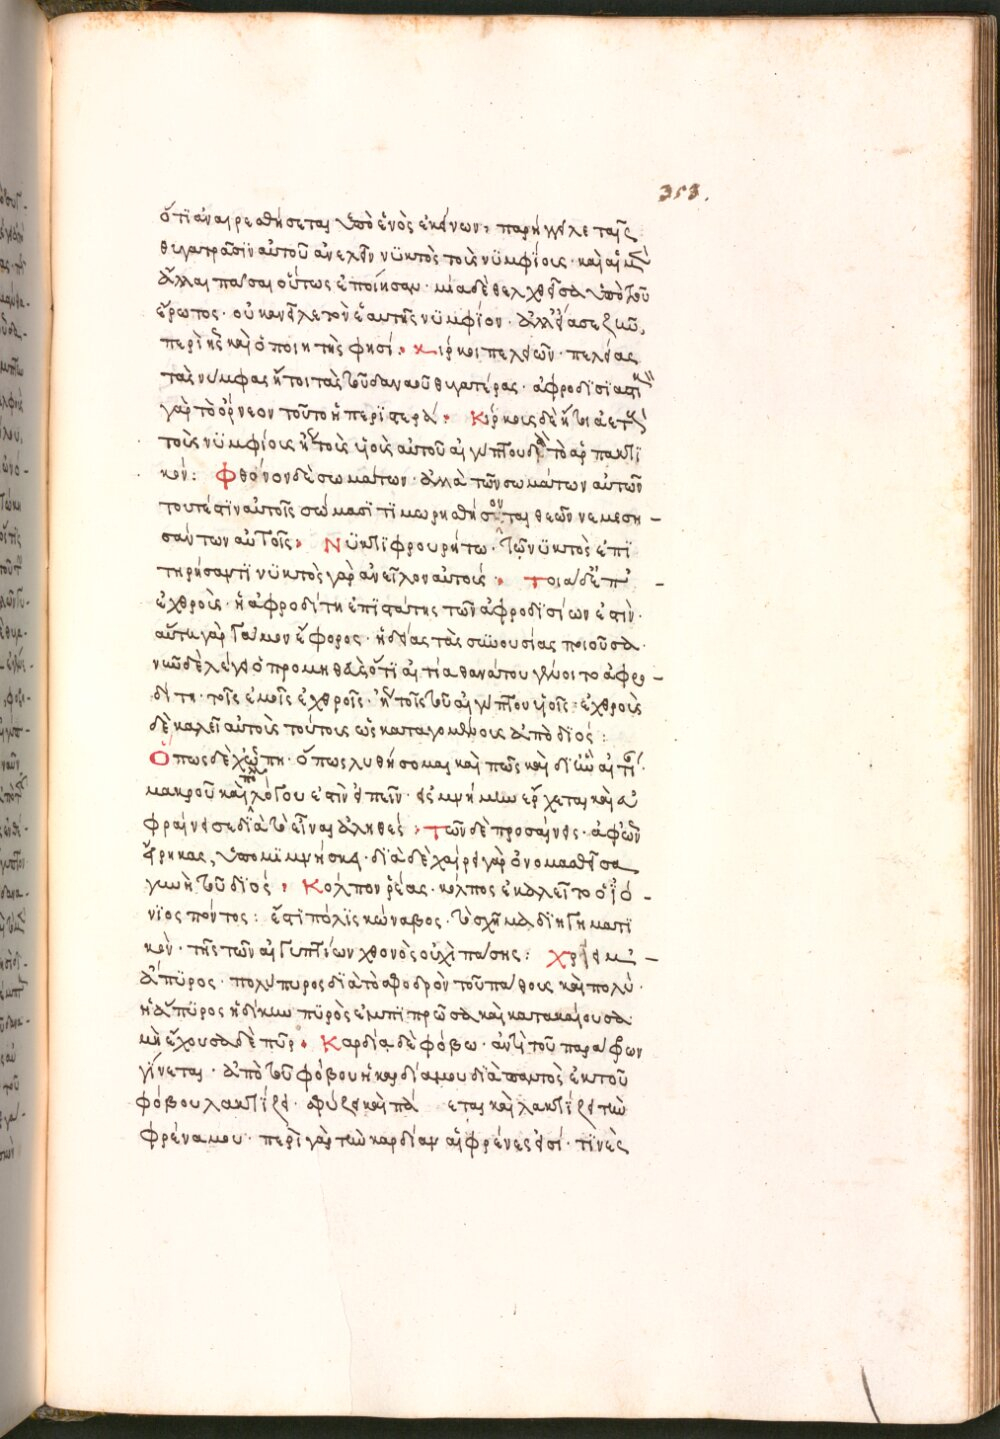 353.
ὅτι ἀναιρεθήσεται ὑπὸ ἑνὸς ἐκείνων, παρήγγειλε ταῖς
θυγατράσιν αὐτοῦ ἀνελεῖν νυκτὸς τοὺς νυμφίους· καὶ αἱ μὲν
ἄλλαι πᾶσαι οὕτως ἐποίησαν· μία δὲ θελχθεῖσα ὑπὸ τοῦ
ἔρωτος· οὐκ ἀνεῖλε τὸν ἑαυτῆς νυμφίον· ἀλλ' εἴασε ζῆν,
περὶ ἧς καὶ ὁ ποιητής φησί· κίρκοι πελειῶν· πελείας
τὰς νύμφας ἤτοι τὰς τοῦ δαναοῦ θυγατέρας· ἀφροδισιαστικὴ
γὰρ τὸ ὄρνεον τοῦτο ἡ περιστερά· Κίρκους δὲ ἤτοι ἀετοὺς
τοὺς νυμφίους ἤτοι τοὺς υἱοὺς αὐτοῦ αἰγύπτου διὰ τὸ ἁρπακτι
κόν: Φθόνον δὲ σωμάτων· ἀλλὰ τῶν σωμάτων αὐτῶν
τουτέστιν αὐτοῖς σώμασι τιμωρηθήσονται θεῶν νεμεση
σάντων αὐτοῖς· Νυκτιφρουρήτω· τῶν νυκτὸς ἐπι
τηρήσαντι νυκτὸς γὰρ ἀνεῖλον αὐτούς· τοιάδε ἐπ'
ἐχθρούς· ἡ ἀφροδίτη ἐπιστάτης τῶν ἀφροδισίων ἐστὶν·
αὕτη γὰρ γάμων ἔφορος· ἡδείας τὰς συνουσίας ποιοῦσα·
νῦν δὲ λέγει ὁ προμηθεὺς ὅτι αἰτία θανάτου γένοιτο ἀφρο
δίτη· τοῖς ἐμοῖς ἐχθροῖς· ἤτοι τοῖς τοῦ αἰγύπτου υἱοῖς· ἐχθροὺς
δὲ καλεῖ αὐτοὺς τούτους ὡς καταγομένους ἀπὸ διός:
Ὅπως δὲ χὤπη· ὅπως λυθήσομαι καὶ πῶς καὶ δι' ἣν αἰτίαν
μακροῦ καὶ πολλοῦ λόγου ἐστὶν εἰπεῖν· εἰς μνήμην ἔρχεται καὶ εὐ
φραίνει σε διὰ τὸ εἶναι ἀληθές· τῶν δὲ προσαίνει σε· ἀφ' ὧν
εἴρηκας, ὑπομιμνήσκει· διὰ δὲ χαίρει γὰρ ὀνομασθεῖσα
γυνὴ τοῦ διός· Κόλπον ῥέας· κόλπος ἐκαλεῖτο ὁ ἰό
νιος πόντος: ἔστι πόλις κάνωβος· τὸ σχῆμα διηγηματι
κόν· τῆς τῶν αἰγυπτίων χθονὸς οὐχὶ πάσης: χρίει μ'
ἄπυρος· πολύπυρος διὰ τὸ σφοδρὸν τοῦ πάθους καὶ πολύ·
ἢ ἄπυρος ἡ δίκην πυρὸς ἐμπιπρῶσα καὶ κατακαίουσα·
μὴ ἔχουσα δὲ πῦρ· Καρδία δὲ φόβω· ἀντὶ τοῦ παράφρων
γίνεται· ἀπὸ τοῦ φόβου ἡ καρδία μου διαπαντὸς ἐκ τοῦ
φόβου λακτίζει· σφύζει καὶ πά εται καὶ λακτίζει τὴν
φρένα μου· περὶ γὰρ τὴν καρδίαν αἱ φρένες εἰσί· τινὲς